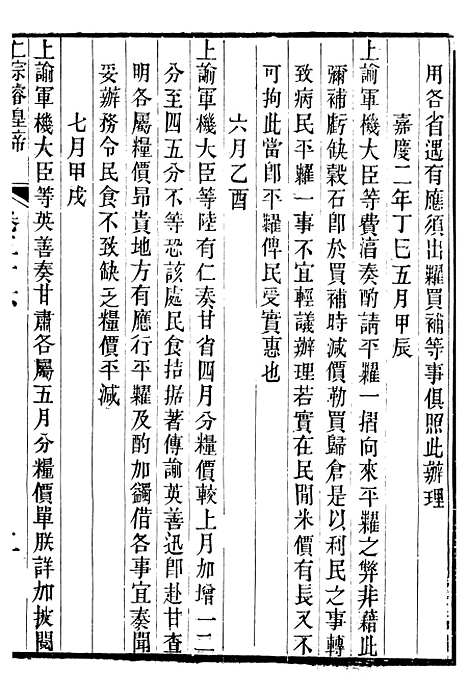 用各省遇有應須出糶買補等事俱照此辦理
嘉慶二年丁巳五月甲辰
上諭軍機大臣等費淳奏酌請平糶一摺向來平糶之弊非藉此
彌補虧缺穀石卽於買補時減價勒買歸倉是以利民之事轉
致病民平糶一事不宜輕議辦理若實在民閒米價有長又不
可拘此當卽平糶俾民受實惠也
六月乙酉
上諭軍機大臣等陸有仁奏甘省四月分糧價較上月加增一二
分至四五分不等恐該處民食拮据著傳諭英善迅卽赴甘查
明各屬糧價昂貴地方有應行平糶及酌加蠲借各事宜奏聞
妥辦務令民食不致缺乏糧價平減
七月甲戌
上諭軍機大臣等英善奏甘肅各屬五月分糧價單朕詳加披閱
仁宗睿皇帝